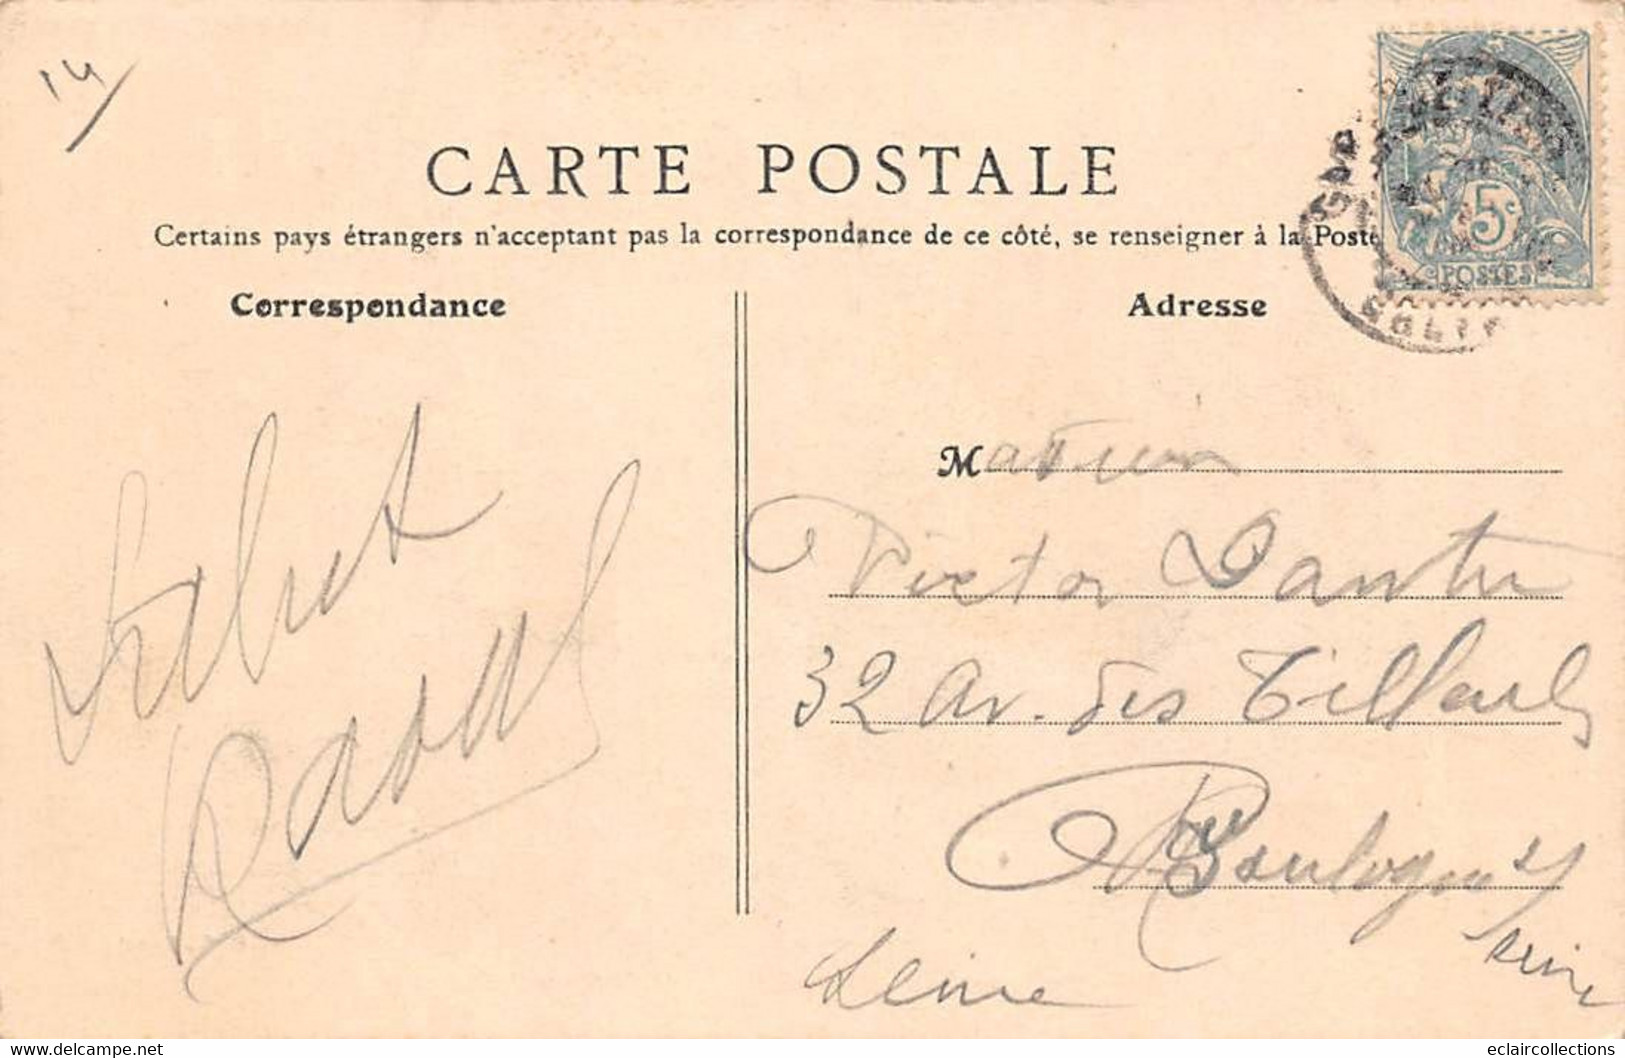 14
CARTE POSTALE
Certains pays étrangers n'acceptant pas la correspondance de ce côté, se renseigner à la Poste
5c
POSTES
Correspondance
Adresse
Salut
Raoul
M
Victor Dantu
32 Av. des Tilleuls
Boulogne s/
Seine
Seine
eclaircollections